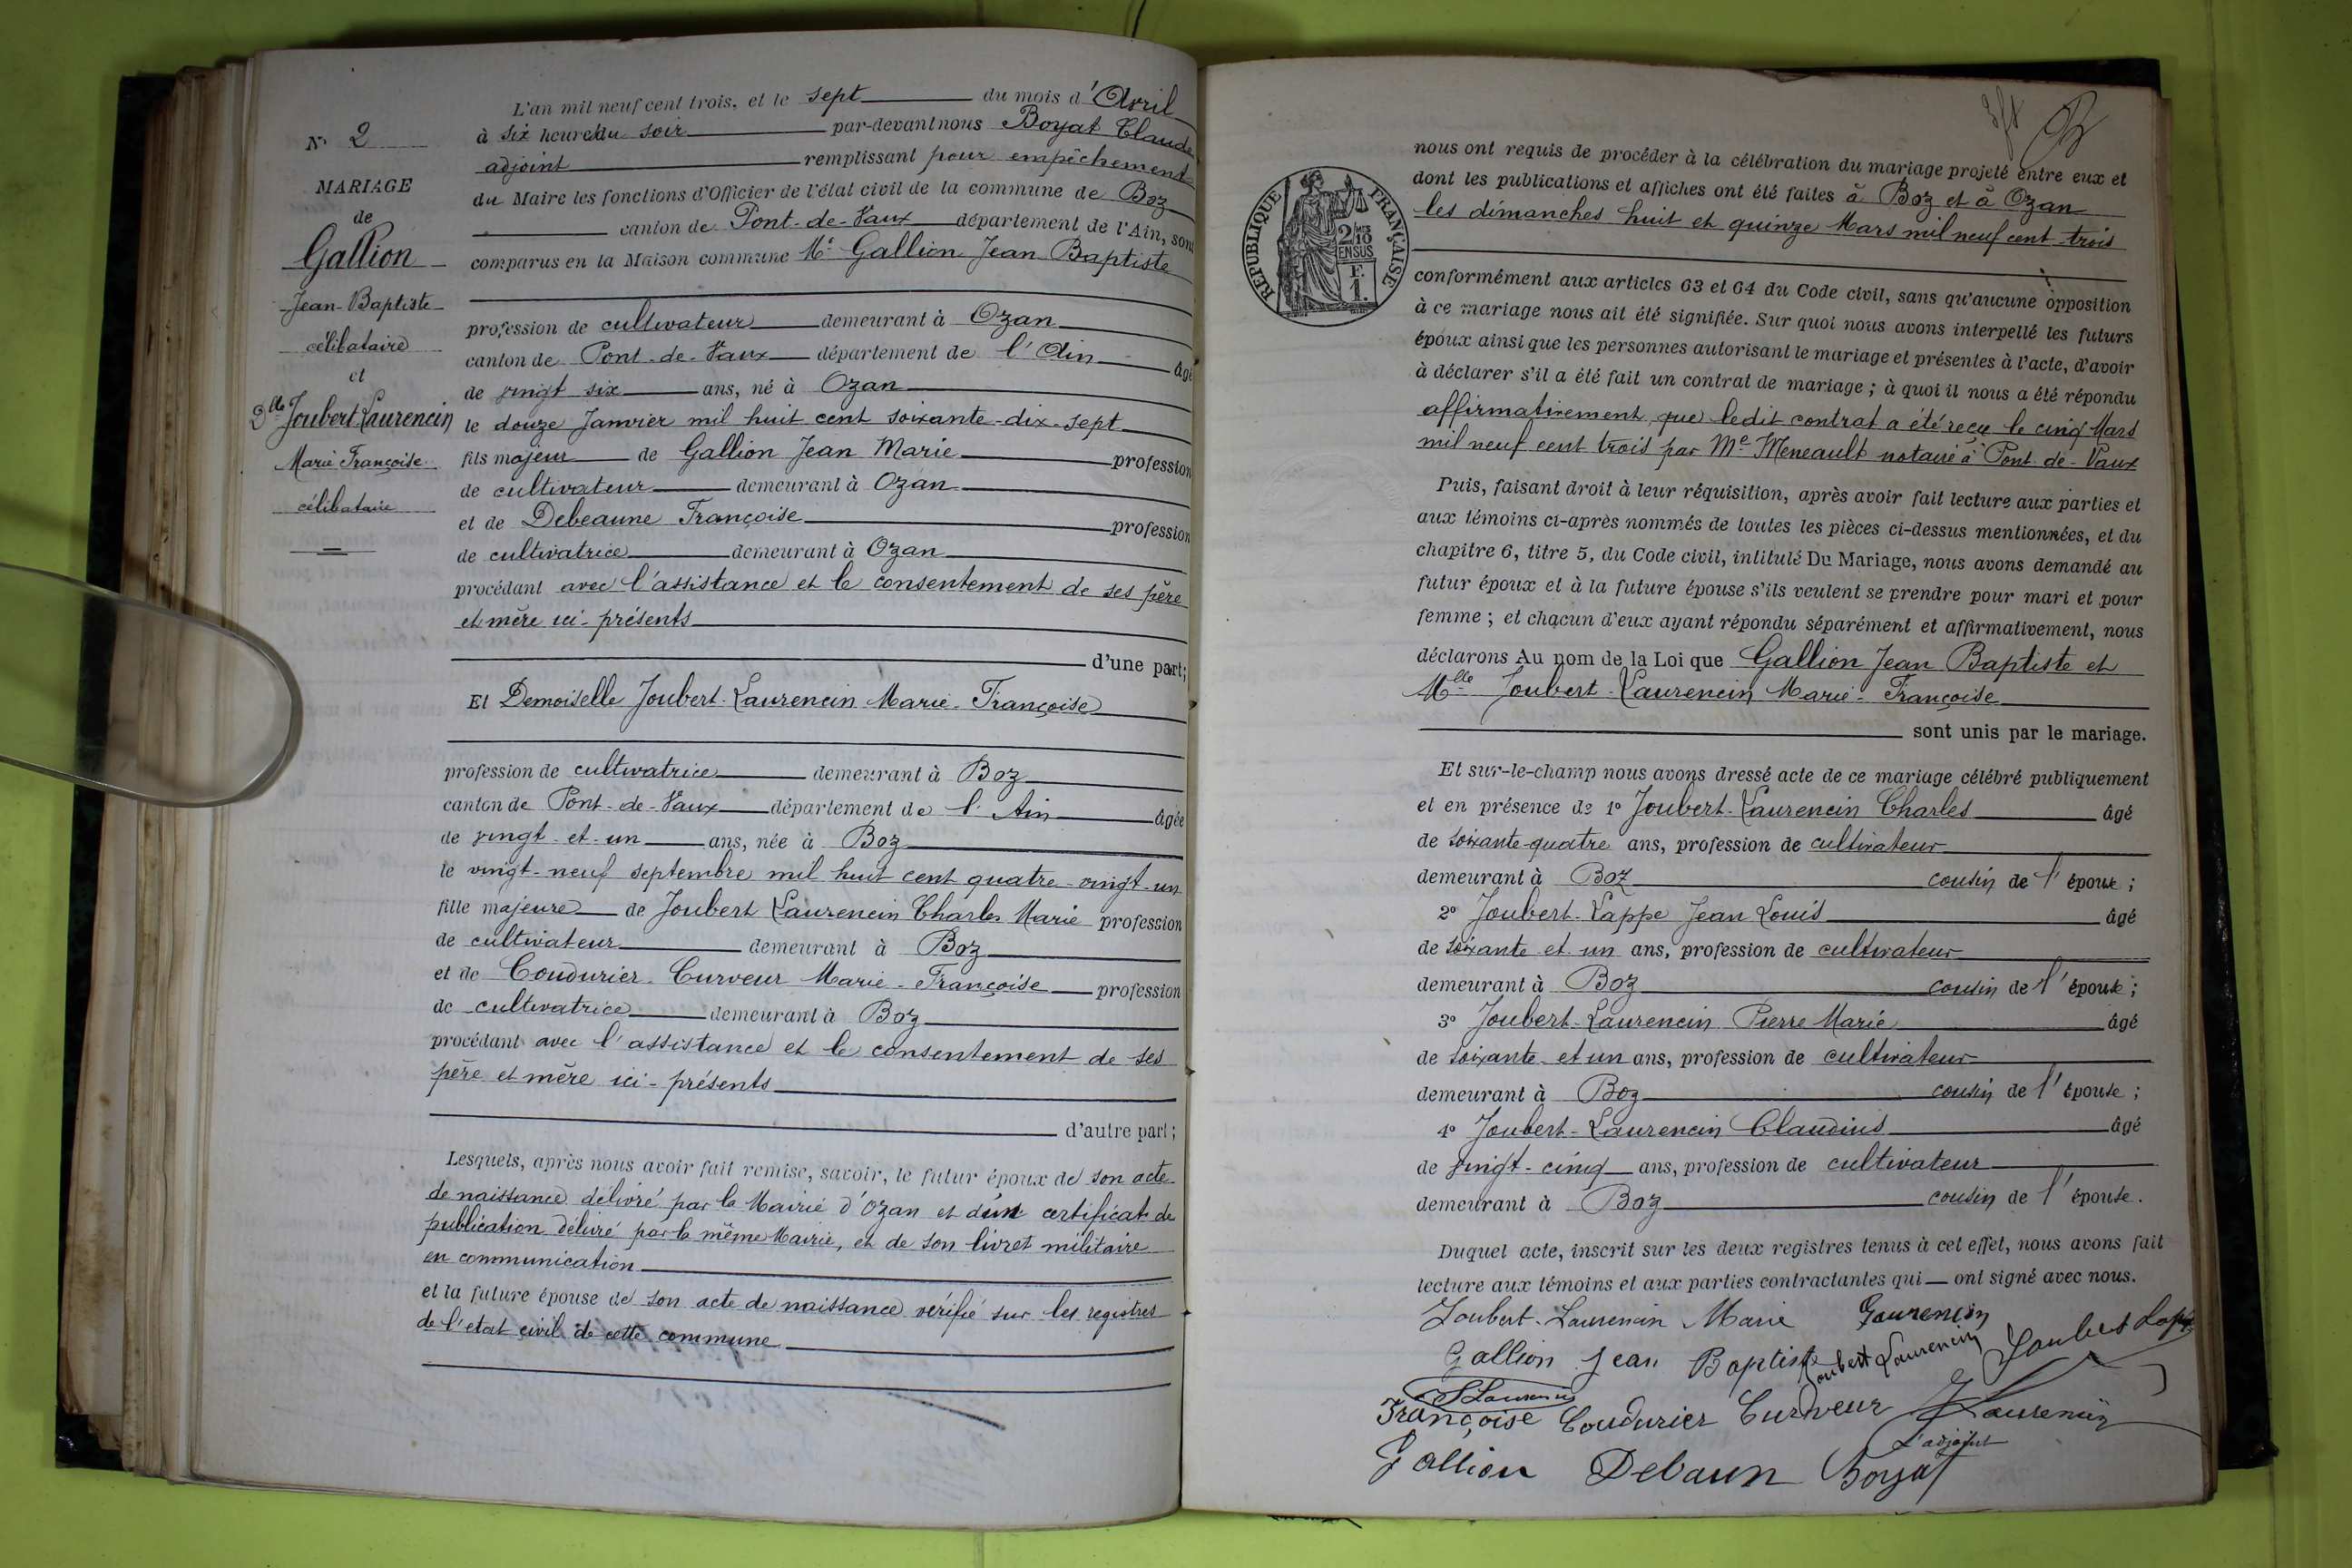 N° 2
MARIAGE
de
Gallion
Jean-Baptiste
célibataire
et
Dlle Joubert Laurencin
Marie Françoise
célibataire
L'an mil neuf cent trois, et le sept du mois d'Avril
à six heures du soir par-devant nous Boyat Claude
adjoint remplissant pour empêchement
du Maire les fonctions d'Officier de l'état civil de la commune de Boz
canton de Pont-de-Vaux département de l'Ain, sont
comparus en la Maison commune Mr Gallion Jean Baptiste
profession de cultivateur demeurant à Ozan
canton de Pont-de-Vaux département de l'Ain âgé
de vingt six ans, né à Ozan
le douze Janvier mil huit cent soixante-dix-sept
fils majeur de Gallion Jean Marie profession
de cultivateur demeurant à Ozan
et de Debeaune Françoise profession
de cultivatrice demeurant à Ozan
procédant avec l'assistance et le consentement de ses père
et mère ici-présents
d'une part;
Et Demoiselle Joubert-Laurencin Marie-Françoise
profession de cultivatrice demeurant à Boz
canton de Pont-de-Vaux département de l'Ain âgée
de vingt-et-un ans, née à Boz
le vingt-neuf septembre mil huit cent quatre-vingt-un
fille majeure de Joubert Laurencin Charles Marie profession
de cultivateur demeurant à Boz
et de Coudurier-Curveur Marie-Françoise profession
de cultivatrice demeurant à Boz
procédant avec l'assistance et le consentement de ses
père et mère ici-présents
d'autre part;
Lesquels, après nous avoir fait remise, savoir, le futur époux de son acte
de naissance délivré par la Mairie d'Ozan et d'un certificat de
publication délivré par la même Mairie, et de son livret militaire
en communication
et la future épouse de son acte de naissance vérifié sur les registres
de l'état civil de cette commune
RÉPUBLIQUE FRANÇAISE
2/10 EN SUS
F.
1.
nous ont requis de procéder à la célébration du mariage projeté entre eux et
dont les publications et affiches ont été faites à Boz et à Ozan
les dimanches huit et quinze Mars mil neuf cent trois
conformément aux articles 63 et 64 du Code civil, sans qu'aucune opposition
à ce mariage nous ait été signifiée. Sur quoi nous avons interpellé les futurs
époux ainsi que les personnes autorisant le mariage et présentes à l'acte, d'avoir
à déclarer s'il a été fait un contrat de mariage; à quoi il nous a été répondu
affirmativement, que ledit contrat a été reçu le cinq Mars
mil neuf cent trois par Me Meneault notaire à Pont-de-Vaux
Puis, faisant droit à leur réquisition, après avoir fait lecture aux parties et
aux témoins ci-après nommés de toutes les pièces ci-dessus mentionnées, et du
chapitre 6, titre 5, du Code civil, intitulé Du Mariage, nous avons demandé au
futur époux et à la future épouse s'ils veulent se prendre pour mari et pour
femme; et chacun d'eux ayant répondu séparément et affirmativement, nous
déclarons Au nom de la Loi que Gallion Jean Baptiste et
Mlle Joubert-Laurencin Marie-Françoise
sont unis par le mariage.
Et sur-le-champ nous avons dressé acte de ce mariage célébré publiquement
et en présence de 1° Joubert-Laurencin Charles âgé
de soixante-quatre ans, profession de cultivateur
demeurant à Boz cousin de l'épouse;
2° Joubert-Lappe Jean Louis âgé
de soixante et un ans, profession de cultivateur
demeurant à Boz cousin de l'épouse;
3° Joubert-Laurencin Pierre Marie âgé
de soixante-et un ans, profession de cultivateur
demeurant à Boz cousin de l'épouse;
4° Joubert-Laurencin Claudius âgé
de vingt-cinq ans, profession de cultivateur
demeurant à Boz cousin de l'épouse.
Duquel acte, inscrit sur les deux registres tenus à cet effet, nous avons fait
lecture aux témoins et aux parties contractantes qui ont signé avec nous.
Joubert-Laurencin Marie Laurencin
Gallion Jean Baptiste Joubert Laurencin Joubert Lappe
Françoise Coudurier Curveur Laurencin
L'adjoint
Gallion Debaun Boyat